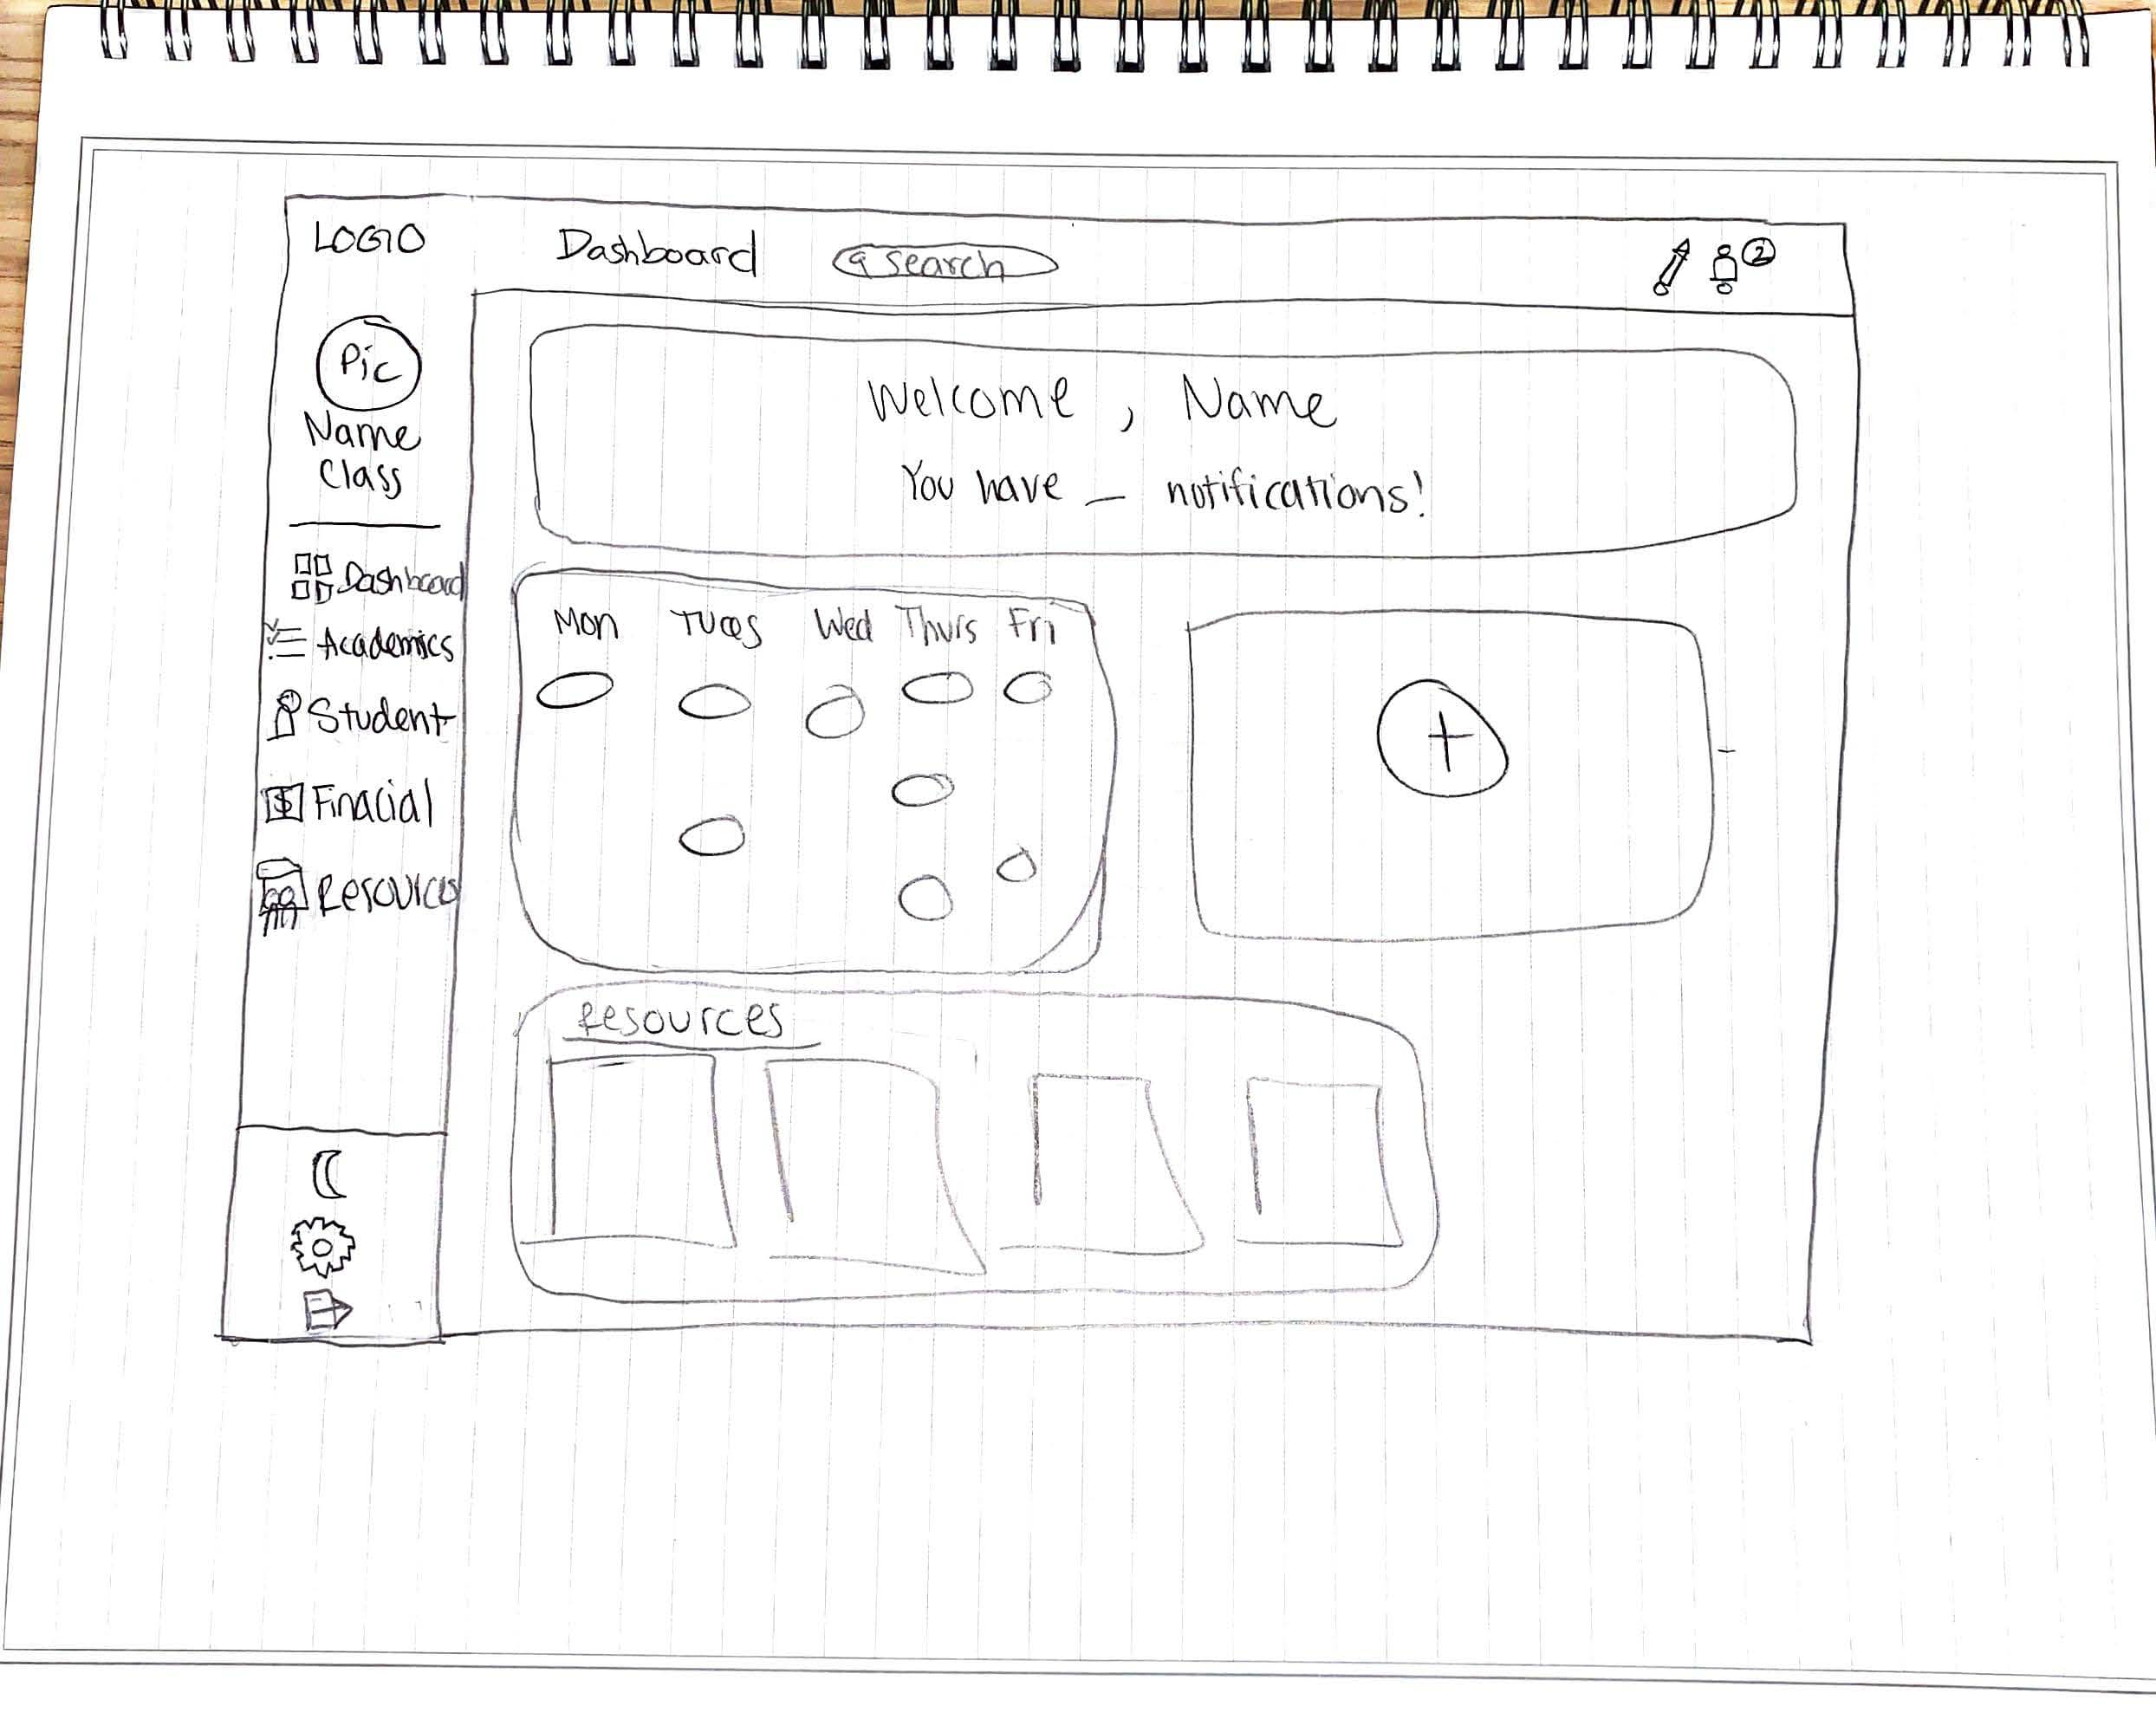 LOGO
Dashboard
search
2
Pic
Name
Class
Dashboard
Academics
Student
$ Finacial
Resources
Welcome, Name
You have _ notifications!
Mon Tues Wed Thurs Fri
+
Resources